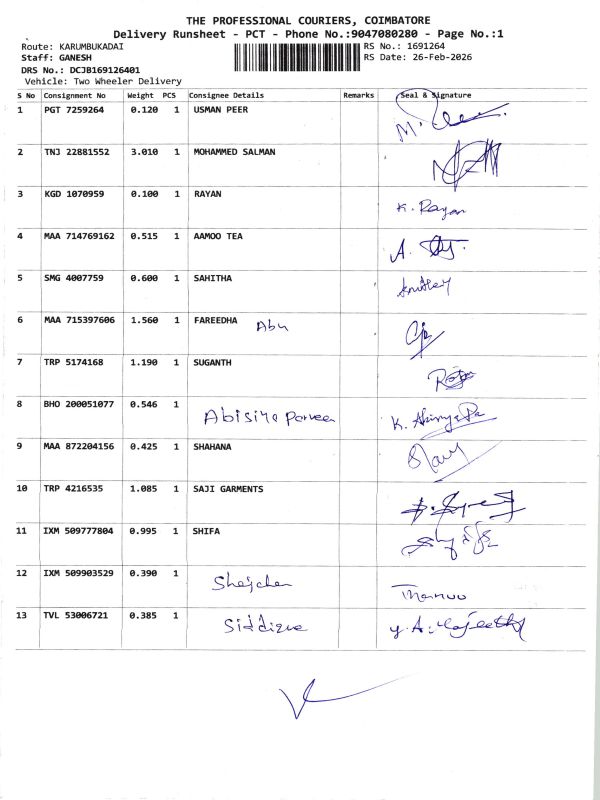 THE PROFESSIONAL COURIERS, COIMBATORE
Delivery Runsheet - PCT - Phone No.:9047080280 - Page No.:1
Route: KARUMBUKADAI RS No.: 1691264
Staff: GANESH RS Date: 26-Feb-2026
DRS No.: DCJB169126401
Vehicle: Two Wheeler Delivery
S No Consignment No Weight PCS Consignee Details Remarks Seal & Signature
1 PGT 7259264 0.120 1 USMAN PEER
2 TNJ 22881552 3.010 1 MOHAMMED SALMAN
3 KGD 1070959 0.100 1 RAYAN K. Rayan
4 MAA 714769162 0.515 1 AAMOO TEA
5 SMG 4007759 0.600 1 SAHITHA
6 MAA 715397606 1.560 1 FAREEDHA Abu
7 TRP 5174168 1.190 1 SUGANTH
8 BHO 200051077 0.546 1
9 MAA 872204156 0.425 1 SHAHANA
10 TRP 4216535 1.085 1 SAJI GARMENTS
11 IXM 509777804 0.995 1 SHIFA
12 IXM 509903529 0.390 1
13 TVL 53006721 0.385 1